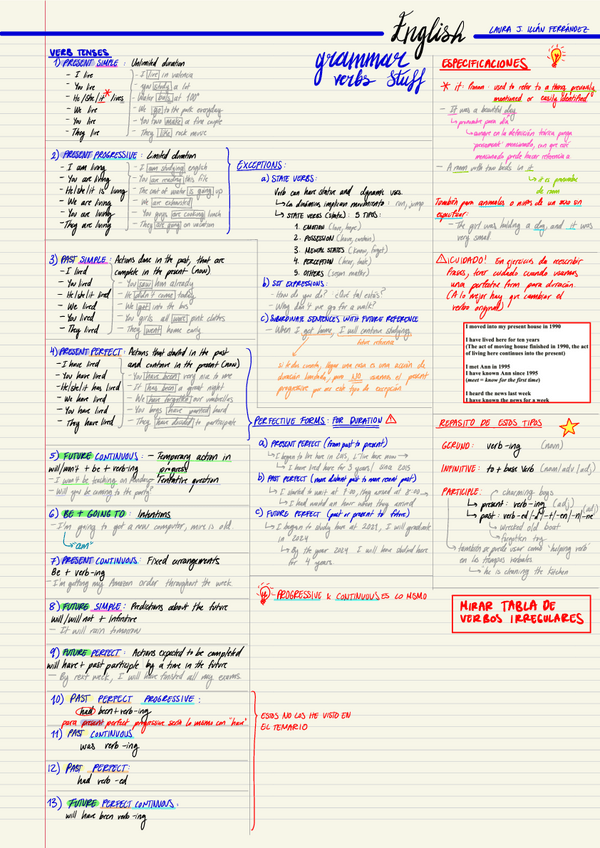 English
LAURA J. ILLÁN FERRÁNDEZ
grammar
verbs stuff
VERB TENSES
1) PRESENT SIMPLE: Unlimited duration
- I live
- You live
- He/She/it* lives
- We live
- You live
- They live
- I live in Valencia
- You study a lot
- Water boils at 100°
- We go to the park everyday
- You two make a fine couple
- They like rock never
2) PRESENT PROGRESSIVE: Limited duration
- I am living
- You are living
- He/she/it is living
- We are living
- You are living
- They are living
- I am studying english
- You are reading this file
- The cost of water is going up
- We are exhausted
- You guys are cooking lunch
- They are going on vacation
3) PAST SIMPLE: Actions done in the past, that are
complete in the present (now)
- I lived
- You lived
- He/she/it lived
- We lived
- You lived
- They lived
- You saw him already
- He didn't come today
- We got into the bus
- You girls all wore pink clothes
- They went home early
4) PRESENT PERFECT: Actions that started in the past
and continue in the present (now)
- I have lived
- You have lived
- He/she/it has lived
- We have lived
- You have lived
- They have lived
- You have been very nice to me
- It has been a great night
- We have forgotten our umbrellas
- You boys have partied hard
- They have decided to participate
5) FUTURE CONTINUOUS: - Temporary action in
will/won't + be + verb-ing progress
- I won't be teaching on Monday - Tentative question
- Will you be coming to the party?
6) BE + GOING TO: Intentions
- I'm going to get a new computer, mine is old.
"am"
7) PRESENT CONTINUOUS: Fixed arrangements
Be + verb-ing
- I'm getting my Amazon order throughout the week.
8) FUTURE SIMPLE: Predictions about the future
will/will not + infinitive
- It will rain tomorrow
9) FUTURE PERFECT: Actions expected to be completed
will have + past participle by a time in the future
- By next week, I will have finished all my exams.
10) PAST PERFECT PROGRESSIVE:
had been + verb-ing
para present perfect progressive sería lo mismo con "have"
11) PAST CONTINUOUS
was verb-ing
12) PAST PERFECT:
had verb-ed
13) FUTURE PERFECT CONTINUOUS:
will have been verb-ing
ESTOS NO LOS HE VISTO EN
EL TEMARIO
EXCEPTIONS:
a) STATE VERBS:
Verb can have stative and dynamic uses
La dinámica implica movimiento: run, jump
STATE VERBS (state): 5 TIPOS:
1. EMOTION (love, hope)
2. POSSESSION (have, contain)
3. MENTAL STATES (know, forget)
4. PERCEPTION (hear, look)
5. OTHERS (seem, matter)
b) SET EXPRESSIONS:
- How do you do? ¿Qué tal estás?
- Why don't we go for a walk?
c) SUBORDINATE SENTENCES WITH FUTURE REFERENCE
- When I get home, I will continue studying.
future reference
si te das cuenta, sigue una es una acción de
duración limitada, pero NO usamos el present
progressive por ser este tipo de excepción.
PERFECTIVE FORMS: FOR DURATION
a) PRESENT PERFECT (from past to present)
I began to live here in 2015, I live here now
I have lived here for 8 years / since 2015
b) PAST PERFECT (more distant past to more recent past)
I started to wait at 7:00, they arrived at 8:00
I had waited an hour when they arrived
c) FUTURE PERFECT (past or present to future)
I began to study here at 2021, I will graduate
in 2024
By the year 2024 I will have studied here
for 4 years.
PROGRESSIVE & CONTINUOUS ES LO MISMO
ESPECIFICACIONES
* it: Pronoun: used to refer to a thing previously
mentioned or easily identified
- It was a beautiful day
pronombre para día
aunque en la definición teórica ponga
previamente mencionado, en que sea
mencionado puede hacer referencia a
- A room with two beds in it
it es pronombre
de room
También para animales o niños de un sexo sin
especificar:
- The girl was holding a dog and it was
very small
¡CUIDADO! En ejercicios de reescribir
frases, tener cuidado cuando usamos
una perfective form para duración.
(A lo mejor hay que cambiar el
verbo original)
I moved into my present house in 1990
I have lived here for ten years
(The act of moving house finished in 1990, the act
of living here continues into the present)
I met Ann in 1995
I have known Ann since 1995
(meet = know for the first time)
I heard the news last week
I have known the news for a week
REPASITO DE ESTOS TIPOS
GERUND: verb-ing (noun)
INFINITIVE: to + base verb (noun/adv/adj)
PARTICIPLE: charming boys
present: verb-ing (adj)
past: verb-ed/-d/-t/-en/-n/-ne (adj)
wrecked boat
forgotten toy
también se puede usar como "helping verb"
en los tiempos verbales
he is cleaning the kitchen
MIRAR TABLA DE
VERBOS IRREGULARES